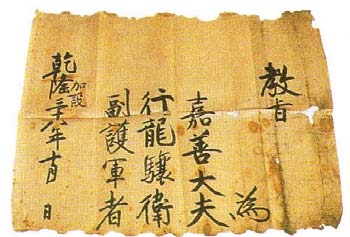 教旨
為
嘉善大夫
行龍驤衛
副護軍者
乾隆 年 月 日
加設